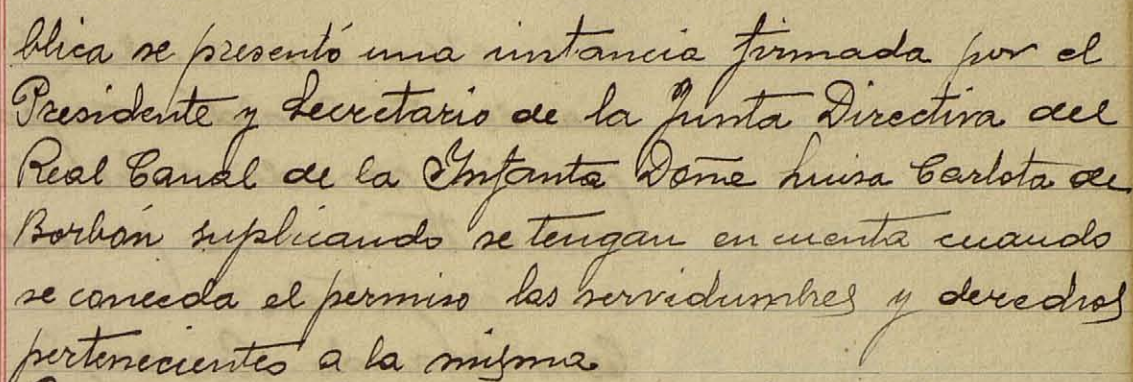 blica se presentó una instancia firmada por el
Presidente y Secretario de la Junta Directiva del
Real Canal de la Infanta Doña Luisa Carlota de
Borbón suplicando se tengan en cuenta cuando
se conceda el permiso las servidumbres y derechos
pertenecientes a la misma